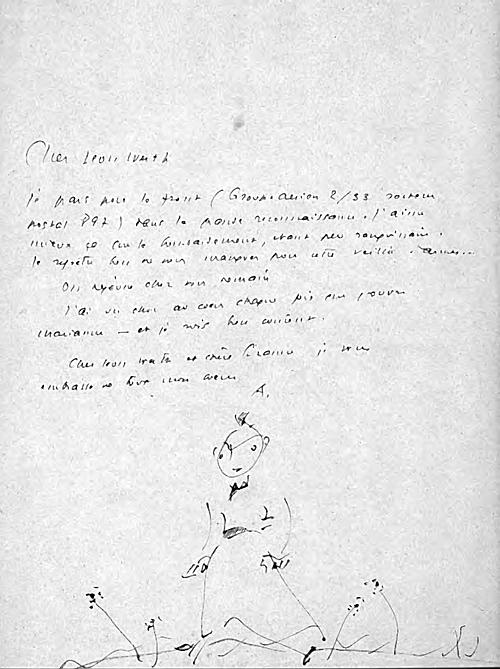 Cher Léon Werth
Je pars pour le front (Groupe aérien 2/33 secteur
postal 897) dans la grande reconnaissance. J'aime
mieux ça que le bombardement, étant peu sanguinaire.
Je regrette bien de vous manquer pour cette veillée
On
J'ai un choc au cœur chaque fois que
— et je suis bien content.
Cher Léon Werth et chère Suzanne je vous
embrasse de tout mon cœur
A.